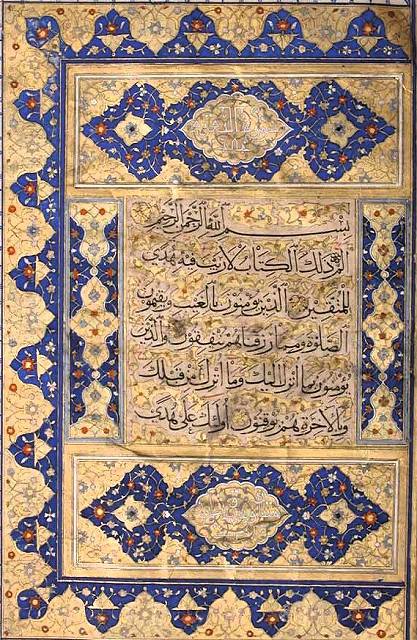 سورة البقرة
بسم الله الرحمن الرحيم
الم ذلك الكتاب لا ريب فيه هدى
للمتقين الذين يؤمنون بالغيب ويقيمون
الصلوة ومما رزقناهم ينفقون والذين
يؤمنون بما أنزل إليك وما أنزل من قبلك
وبالآخرة هم يوقنون أولئك على هدى